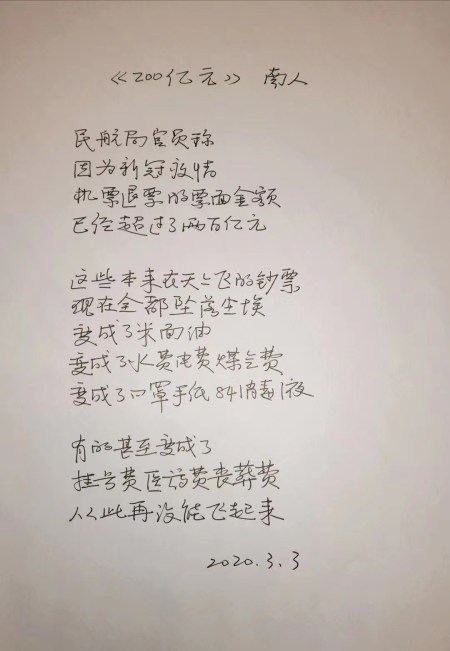 《200亿元》 南人
民航局官员称
因为新冠疫情
机票退票的票面金额
已经超过了两百亿元
这些本来在天上飞的钞票
现在全都坠落尘埃
变成了米面油
变成了水费电费煤气费
变成了口罩手纸84消毒液
有的甚至变成了
挂号费医药费丧葬费
从此再没能飞起来
2020.3.3